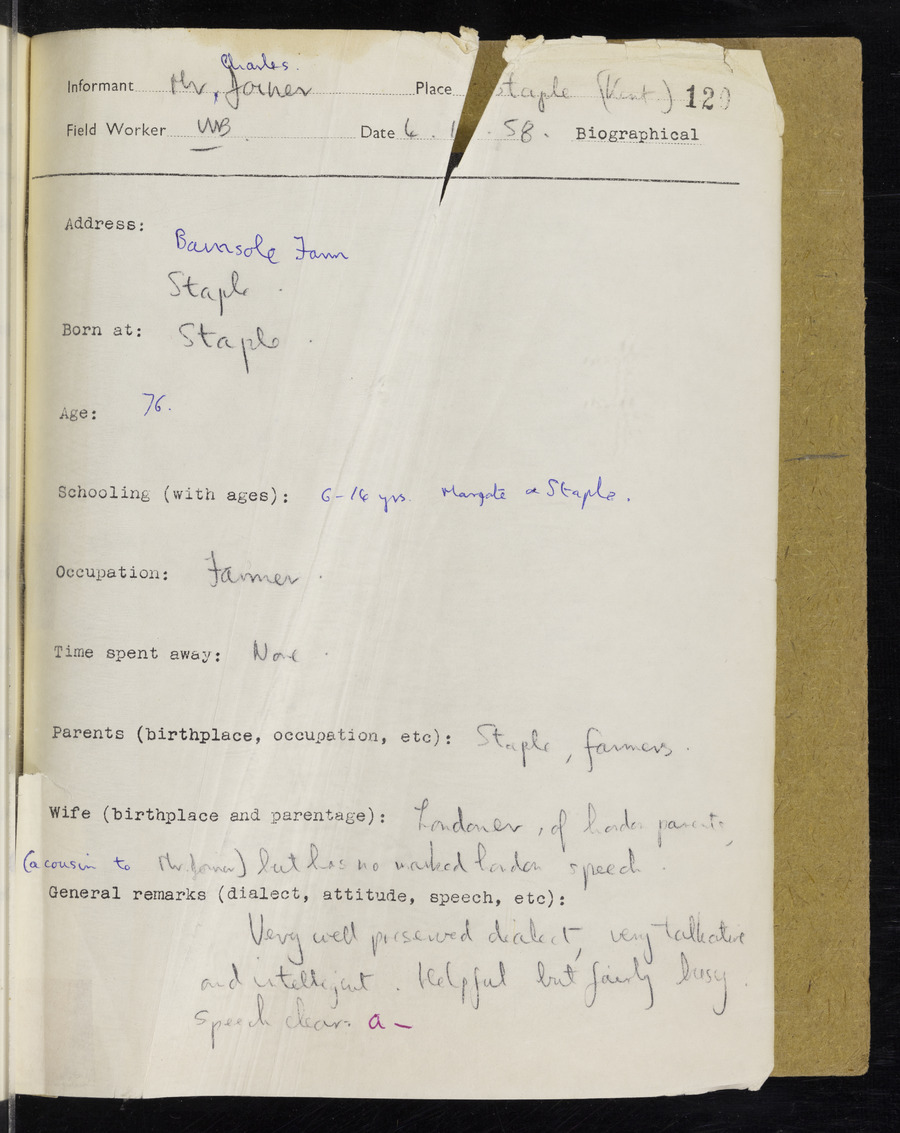 Charles
Informant Mr. Joiner Place Staple (Kent) 120
Field Worker WB Date 58. Biographical
Address: Barnsole Farm
Staple.
Born at: Staple.
Age: 76.
Schooling (with ages): 6-14 yrs. Margate & Staple.
Occupation: Farmer.
Time spent away: None.
Parents (birthplace, occupation, etc): Staple, farmers.
Wife (birthplace and parentage): Londoner, of London parents,
(a cousin to Mr. Joiner) but has no marked London speech.
General remarks (dialect, attitude, speech, etc):
Very well preserved dialect, very talkative
and intelligent. Helpful but fairly busy.
Speech clear. a-